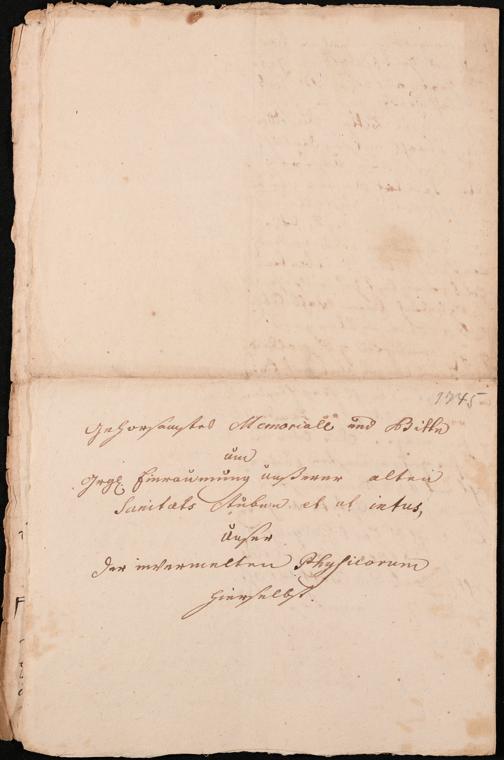 1745
Gehorsamstes Memoriale und Bitte
um
Grgl. Einraumung unserer alten
Sanitæts Stuben et ut intus,
Unser
der invermelten Physicorum
hierselbst.